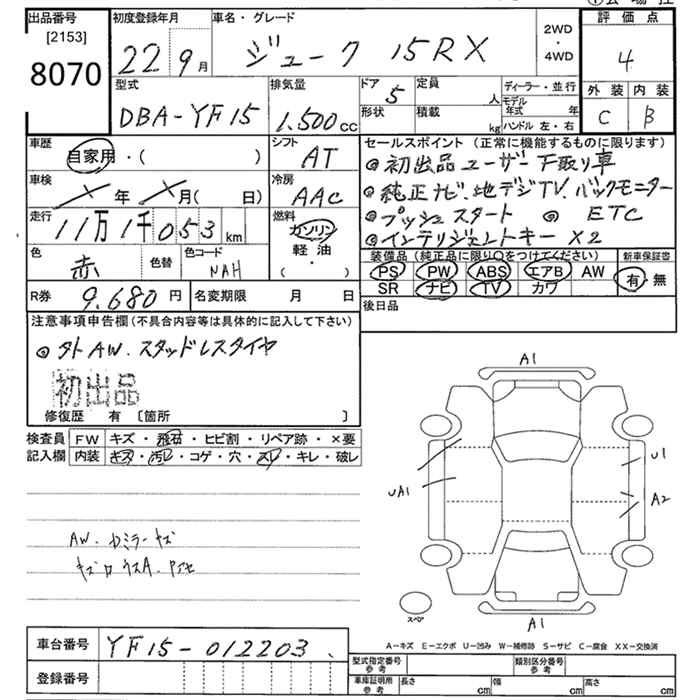 出品番号
[2153]
8070
初度登録年月
22 9月
車名・グレード
ジューク 15RX
2WD
・
4WD
評価点
4
外装 内装
C B
型式
DBA-YF15
排気量
1.500cc
ドア
5
定員
人
形状
積載
kg
ディーラー・並行
モデル年式 年
ハンドル 左・右
車歴
自家用・( )
シフト
AT
車検
× 年 × 月( 日)
冷房
AAC
走行
11万1千053km
燃料
ガソリン
軽・油
・
( )
色
赤
色替
色コード
NAH
R券 9.680円
名変期限 月 日
セールスポイント(正常に機能するものに限ります)
◎初出品ユーザー下取り車
◎純正ナビ、地デジTV、バックモニター
◎プッシュスタート ◎ ETC
◎インテリジェントキー×2
装備品(純正品に限り○をつけてください)
PS PW ABS エアB AW
SR ナビ TV カワ
新車保証書
有・無
後日品
注意事項申告欄(不具合内容等は具体的に記入して下さい)
◎タトAW.スタッドレスタイヤ
初出品
修復歴 有 〔箇所 〕
検査員
記入欄
FW キズ・飛石・ヒビ割・リペア跡・×要
内装 キズ・汚レ・コゲ・穴・スレ・キレ・破レ
AW.
A1
U1
UA1
A2
スペア
A1
車台番号 YF15-012203
登録番号
A−キズ E−エクボ U−凹み W−補修跡 S−サビ C−腐食 XX−交換済
型式指定番号
参考
類別区分番号
参考
車庫証明用
参考
長さ cm 幅 cm 高さ cm